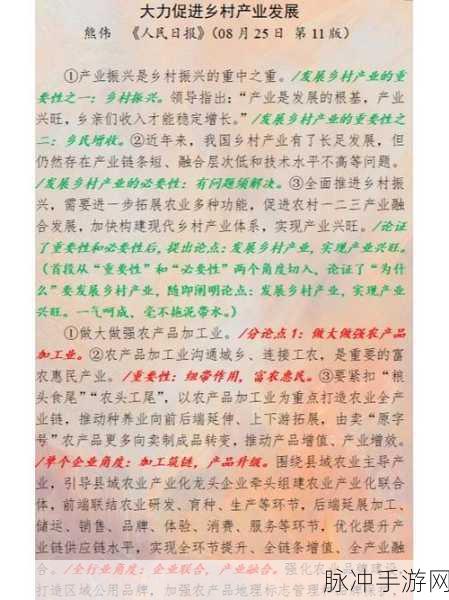 大力促进乡村产业发展
熊伟 《人民日报》（08月25日 第11版）
①产业振兴是乡村振兴的重中之重。/发展乡村产业的重
要性之一：乡村振兴。领导指出：“产业是发展的根基，产业
兴旺，乡亲们收入才能稳定增长。”/发展乡村产业的重要性之
二：乡民增收。②近年来，我国乡村产业有了长足发展，但
仍然存在产业链条短、融合层次低和技术水平不高等问题。
/发展乡村产业的必要性：有问题须解决。③全面推进乡村振
兴，需要进一步拓展农业多种功能，促进农村一二三产业融
合发展，加快构建现代乡村产业体系，实现产业兴旺。/论证
了重要性和必要性后，提出论点：发展乡村产业，实现产业兴旺。
（首段从“重要性”和“必要性”两个角度切入，论证了“为什
么”要发展乡村产业，随即阐明论点：发展乡村产业，实现产业
兴旺。一气呵成、毫不拖泥带水。）
①做大做强农产品加工业。/分论点1：做大做强农产品
加工业。②农产品加工业沟通城乡、连接工农，是重要的富
农惠民产业。/重要性：纽带作用，富农惠民。③要紧扣“粮
头食尾”“农头工尾”，以农产品加工业为重点打造农业全产
业链，推动种养业向前后端延伸、上下游拓展，由卖“原字
号”农产品更多向卖制成品转变，推动产品增值、产业增效。
/单个企业角度：加工筑链，产品升级。围绕县域农业主导产
业，引导县域农业产业化龙头企业牵头组建农业产业化联合
体，前端联结农业研发、育种、生产等环节，后端延展加工、
储运、销售、品牌、体验、消费、服务等环节，优化提升产
业链供应链水平，实现全环节提升、全链条增值、全产业融
合。/全行业角度：企业联合，产业融合。强化农业品牌建设，
打造区域公用品牌，加强农产品地理标志管理
脉冲手游网